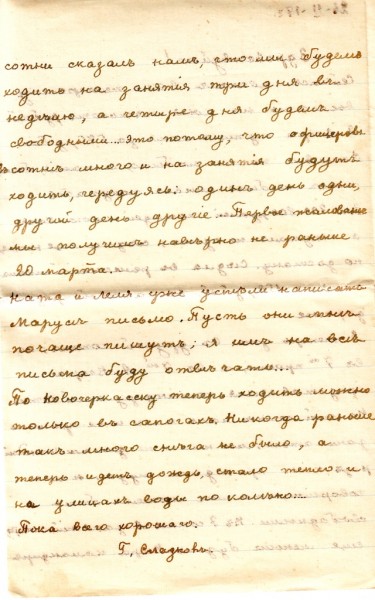 сотни сказалъ намъ, что мы будемъ
ходить на занятія три дня въ
недѣлю, а четыре дня будемъ
свободными... это потому, что офицеровъ
въ сотнѣ много и на занятія будутъ
ходить, чередуясь: одинъ день одни,
другой день другіе. Первое жалованье
мы получимъ навѣрно не раньше
20 марта.
Ната и Леля уже успѣли написать
Марусѣ письмо. Пусть они мнѣ
почаще пишутъ; я имъ на всѣ
письма буду отвѣчать...
По Новочеркасску теперь ходить можно
только в сапогахъ. Никогда раньше
такъ много снѣга не было, а
теперь идетъ дождь, стало тепло и
на улицахъ воды по колѣно...
Пока всего хорошаго.
Г. Сладковъ